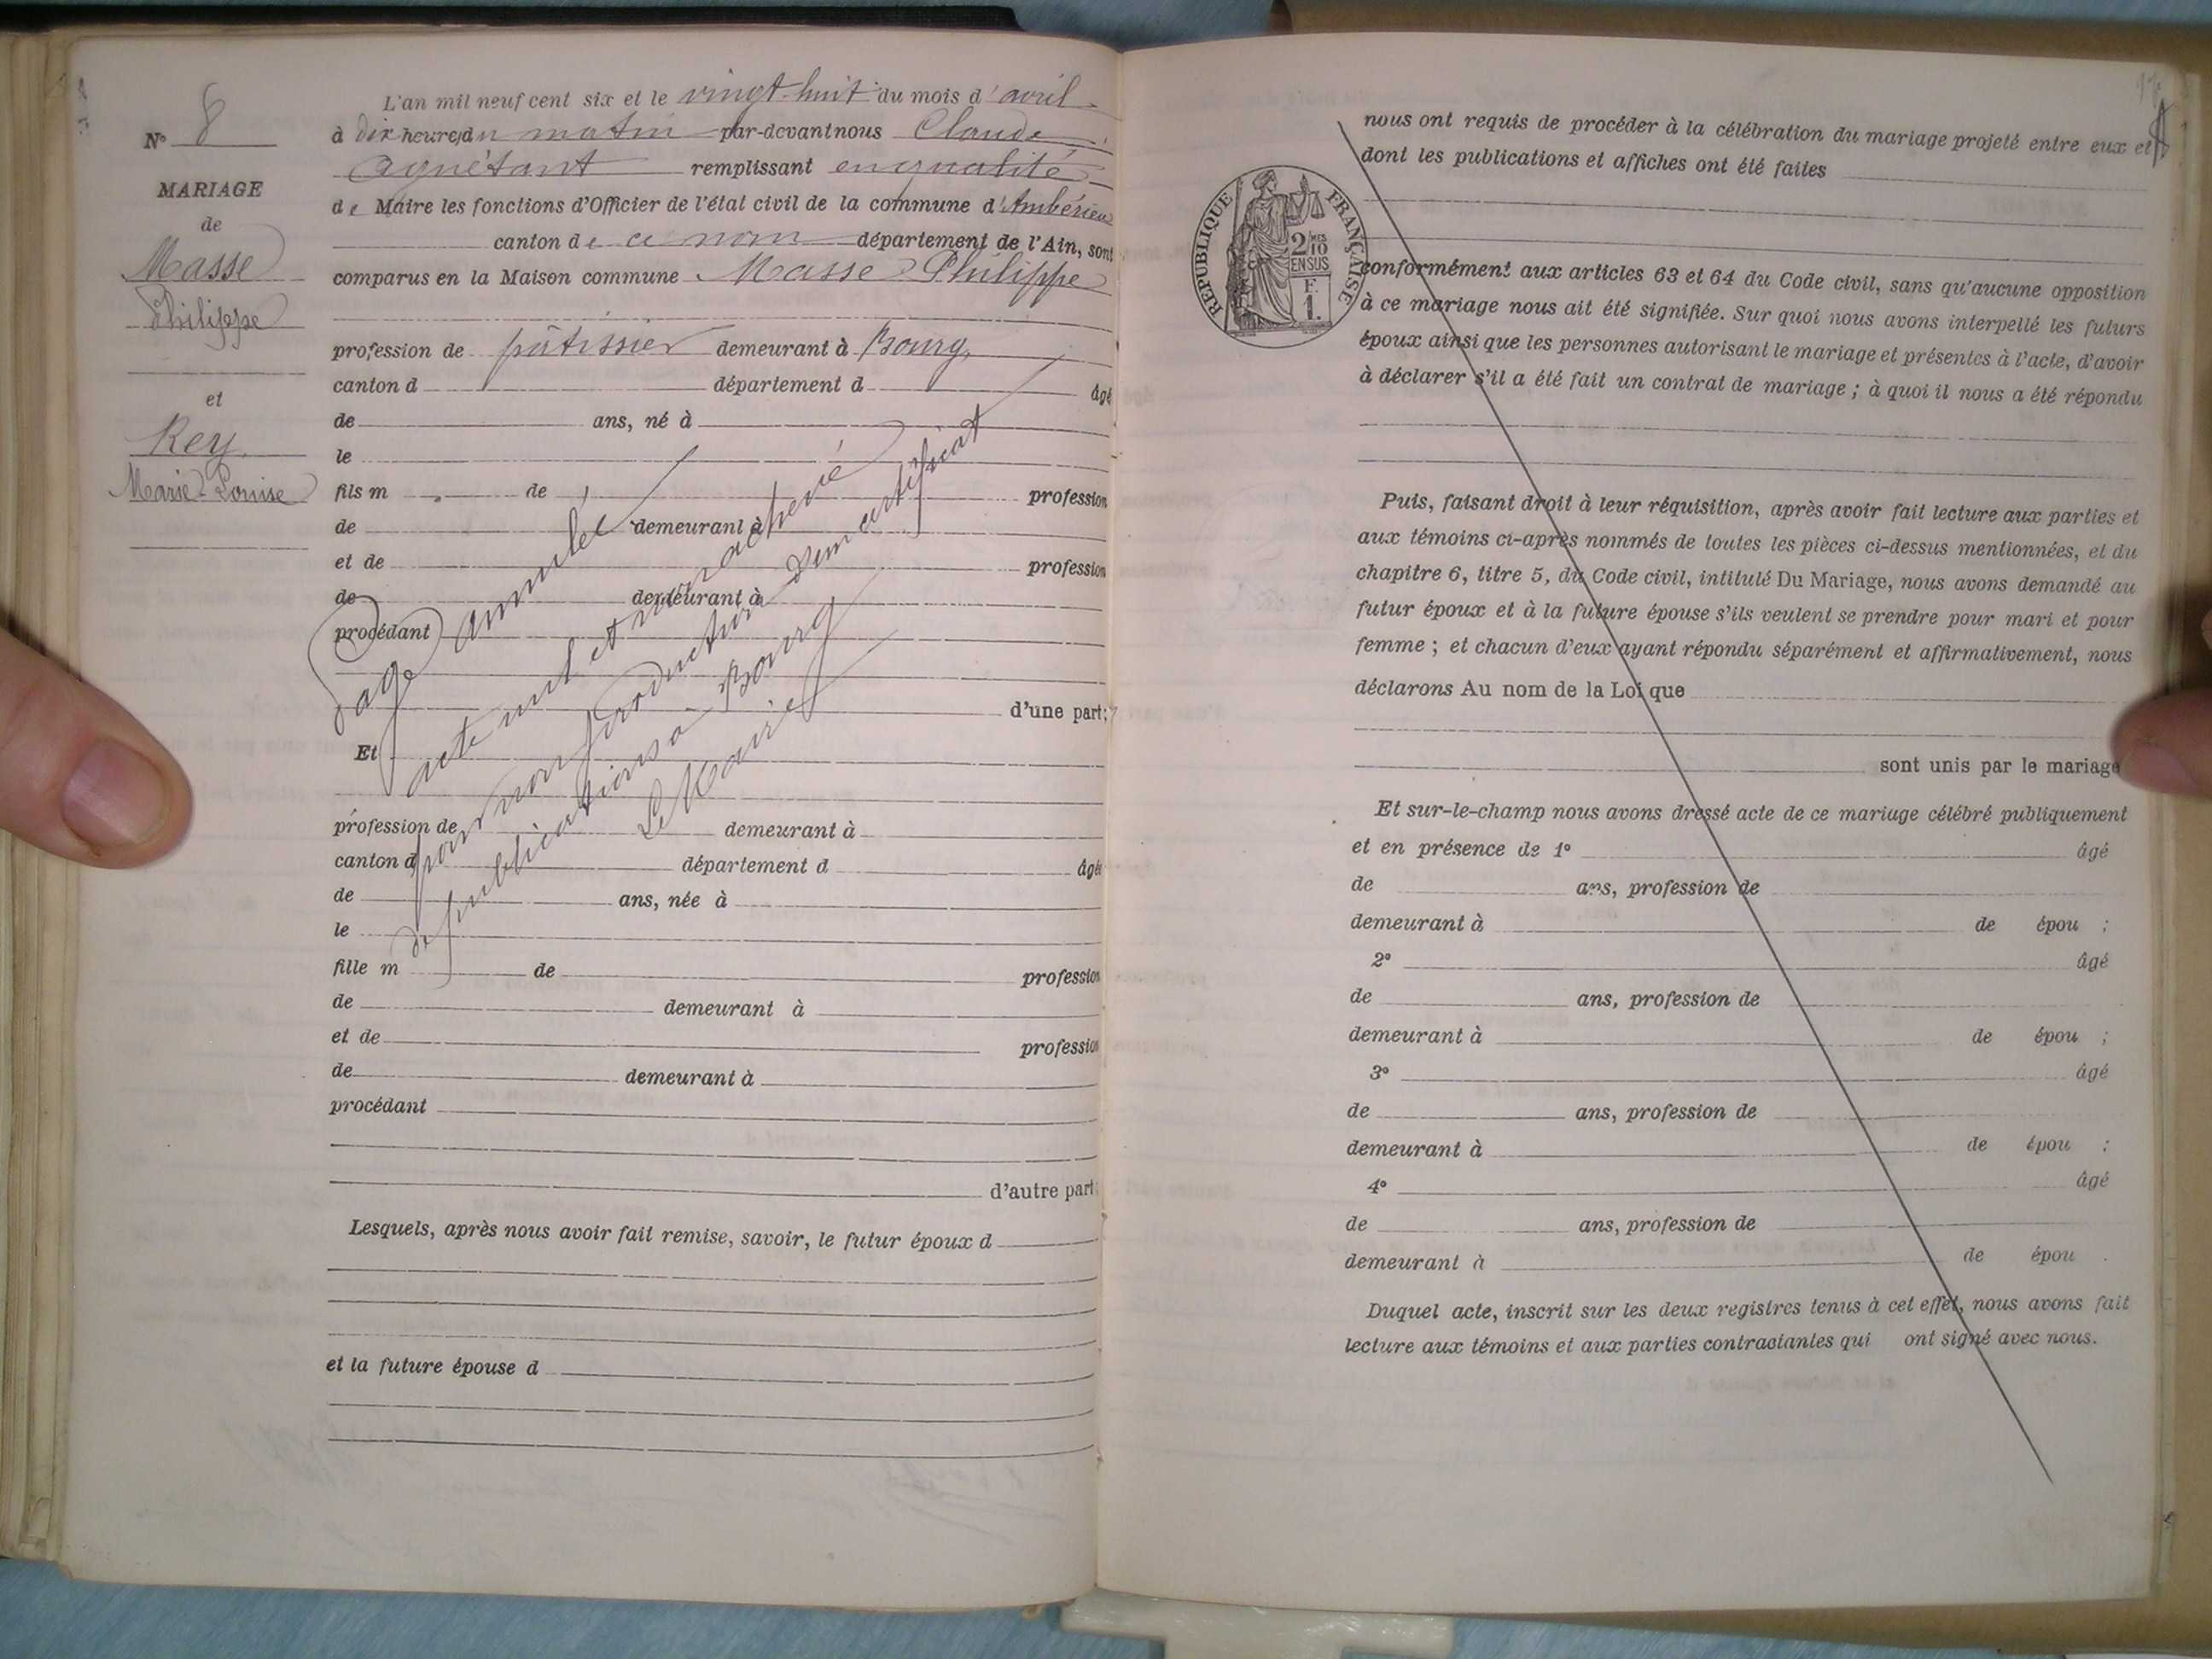 N° 8
MARIAGE
de
Masse
Philippe
et
Rey
Marie-Louise
L'an mil neuf cent six et le vingt-huit du mois d'avril
à dix heures du matin par-devant nous Claude
Agnétant remplissant en qualité
de Maire les fonctions d'Officier de l'état civil de la commune d'Ambérieu
canton de ce nom département de l'Ain, sont
comparus en la Maison commune Masse Philippe
profession de pâtissier demeurant à Bourg,
canton d département d âgé
de ans, né à
le
fils m de profession
de demeurant à
et de profession
de demeurant à
procédant
d'une part;
Et
profession de demeurant à
canton d département d âgée
de ans, née à
le
fille m de profession
de demeurant à
et de profession
de demeurant à
procédant
d'autre part
Lesquels, après nous avoir fait remise, savoir, le futur époux d
et la future épouse d
Page annulée
acte nul et non achevé
pour non production d'un certificat
de publications à Bourg
Le Maire
nous ont requis de procéder à la célébration du mariage projeté entre eux et
dont les publications et affiches ont été faites
RÉPUBLIQUE FRANÇAISE
2 MES
10
EN SUS
F.
1.
conformément aux articles 63 et 64 du Code civil, sans qu'aucune opposition
à ce mariage nous ait été signifiée. Sur quoi nous avons interpellé les futurs
époux ainsi que les personnes autorisant le mariage et présentes à l'acte, d'avoir
à déclarer s'il a été fait un contrat de mariage ; à quoi il nous a été répondu
Puis, faisant droit à leur réquisition, après avoir fait lecture aux parties et
aux témoins ci-après nommés de toutes les pièces ci-dessus mentionnées, et du
chapitre 6, titre 5, du Code civil, intitulé Du Mariage, nous avons demandé au
futur époux et à la future épouse s'ils veulent se prendre pour mari et pour
femme ; et chacun d'eux ayant répondu séparément et affirmativement, nous
déclarons Au nom de la Loi que
sont unis par le mariage
Et sur-le-champ nous avons dressé acte de ce mariage célébré publiquement
et en présence de 1° âgé
de ans, profession de
demeurant à de épou ;
2° âgé
de ans, profession de
demeurant à de épou ;
3° âgé
de ans, profession de
demeurant à de épou ;
4° âgé
de ans, profession de
demeurant à de épou .
Duquel acte, inscrit sur les deux registres tenus à cet effet, nous avons fait
lecture aux témoins et aux parties contractantes qui ont signé avec nous.